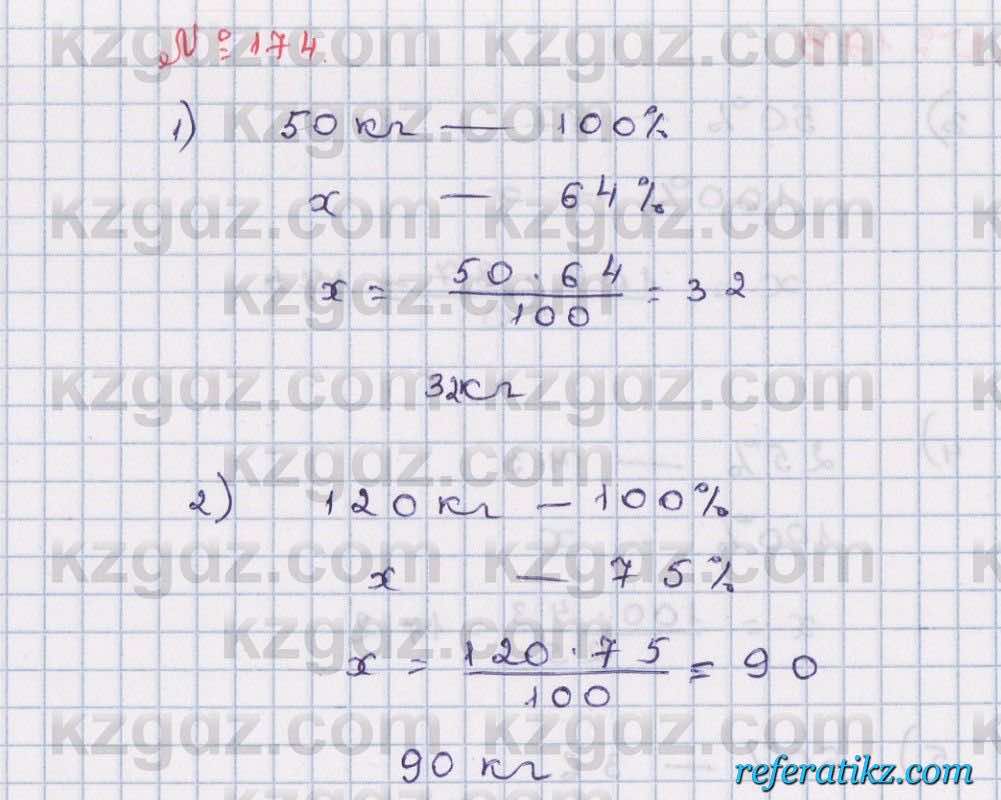 № 174.
1) 50 кг — 100%
x — 64%
x = 50 · 64 / 100 = 32
32кг
2) 120 кг — 100%
x — 75%
x = 120 · 75 / 100 = 90
90 кг
kzgdz.com
referatikz.com